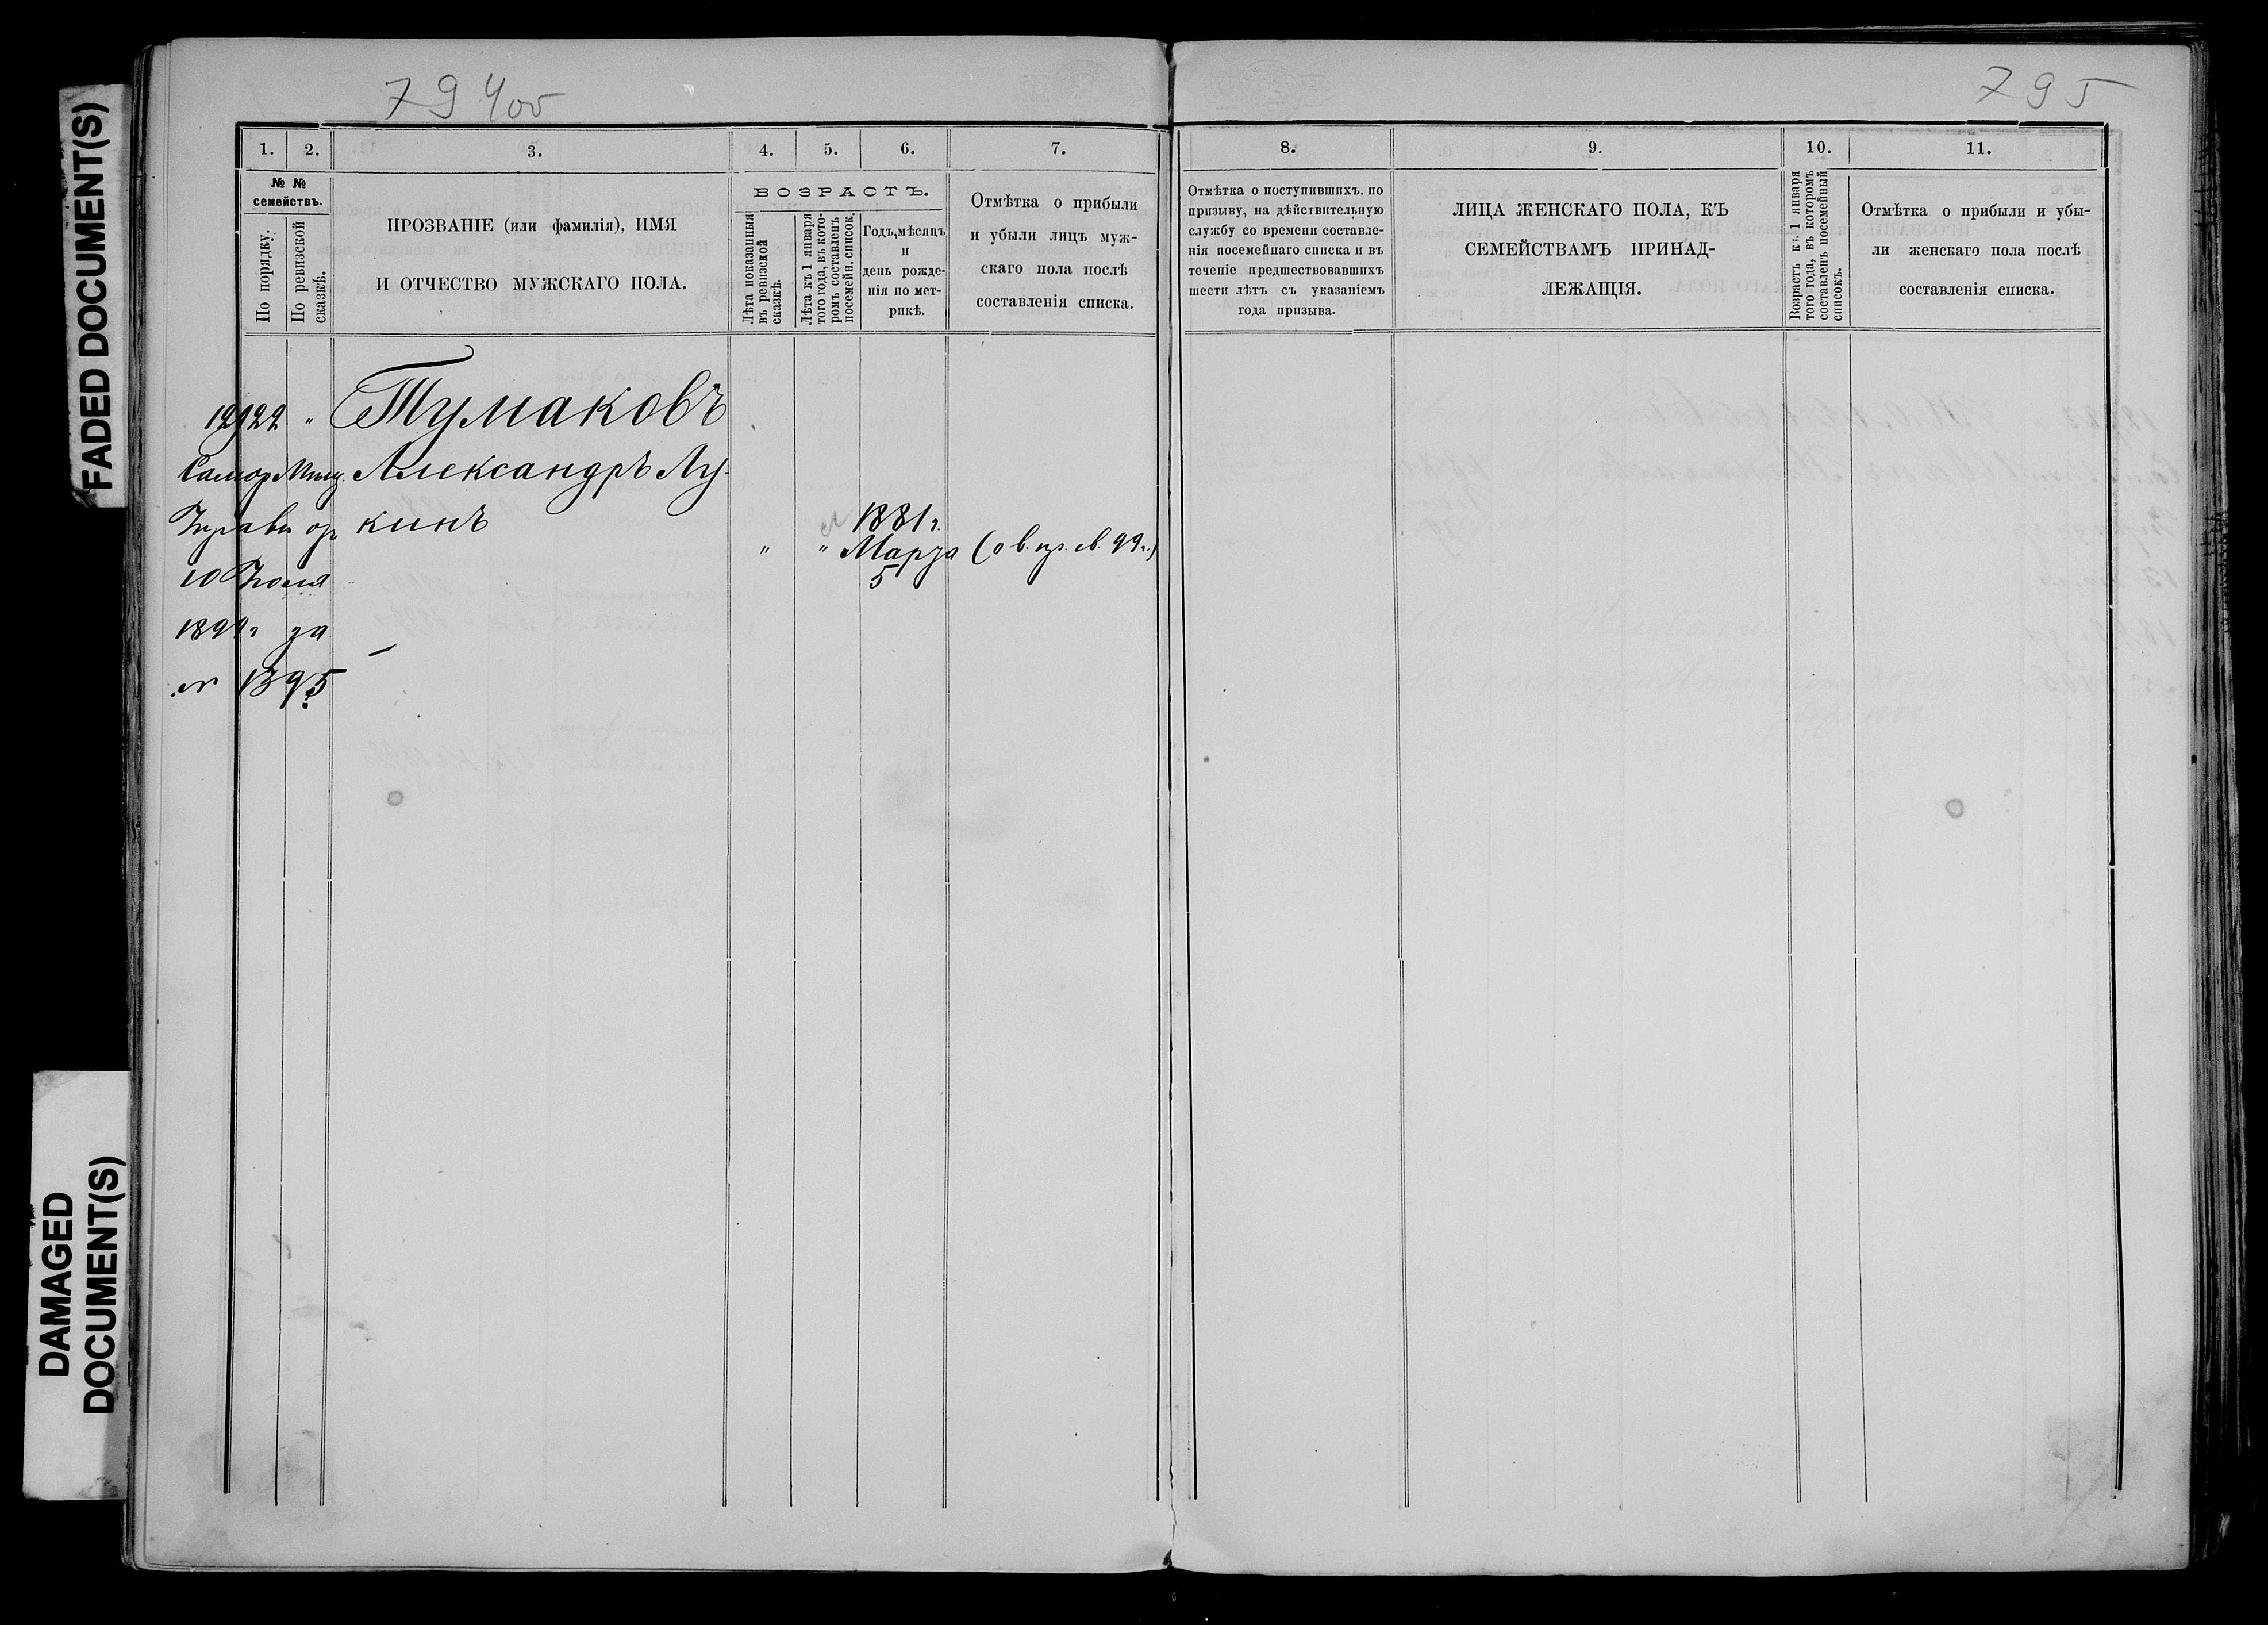 FADED DOCUMENT(S)
DAMAGED
DOCUMENT(S)
794об
795
1. 2. 3. 4. 5. 6. 7.
№ №
семействъ.
По порядку.
По ревизской
сказкѣ.
ПРОЗВАНІЕ (или фамилія), ИМЯ
И ОТЧЕСТВО МУЖСКАГО ПОЛА.
ВОЗРАСТЪ.
Лѣта показанныя
въ ревизской
сказкѣ.
Лѣта къ 1 января
того года, въ кото-
ромъ составленъ
посемейн. списокъ.
Годъ, мѣсяцъ
и
день рожде-
нія по мет-
рикѣ.
Отмѣтка о прибыли
и убыли лицъ муж-
скаго пола послѣ
составленія списка.
8. 9. 10. 11.
Отмѣтка о поступившихъ. по
призыву, на дѣйствительную
службу со времени составле-
нія посемейнаго списка и въ
теченіе предшествовавшихъ
шести лѣтъ съ указаніемъ
года призыва.
ЛИЦА ЖЕНСКАГО ПОЛА, КЪ
СЕМЕЙСТВАМЪ ПРИНАД-
ЛЕЖАЩІЯ.
Возрастъ къ 1 января
того года, въ которомъ
составленъ посемейный
списокъ.
Отмѣтка о прибыли и убы-
ли женскаго пола послѣ
составленія списка.
" Тумаковъ
Александръ Лу-
кинъ
1881 г.
" " Марта
5
10 Іюля
1899 г за
№ 1395